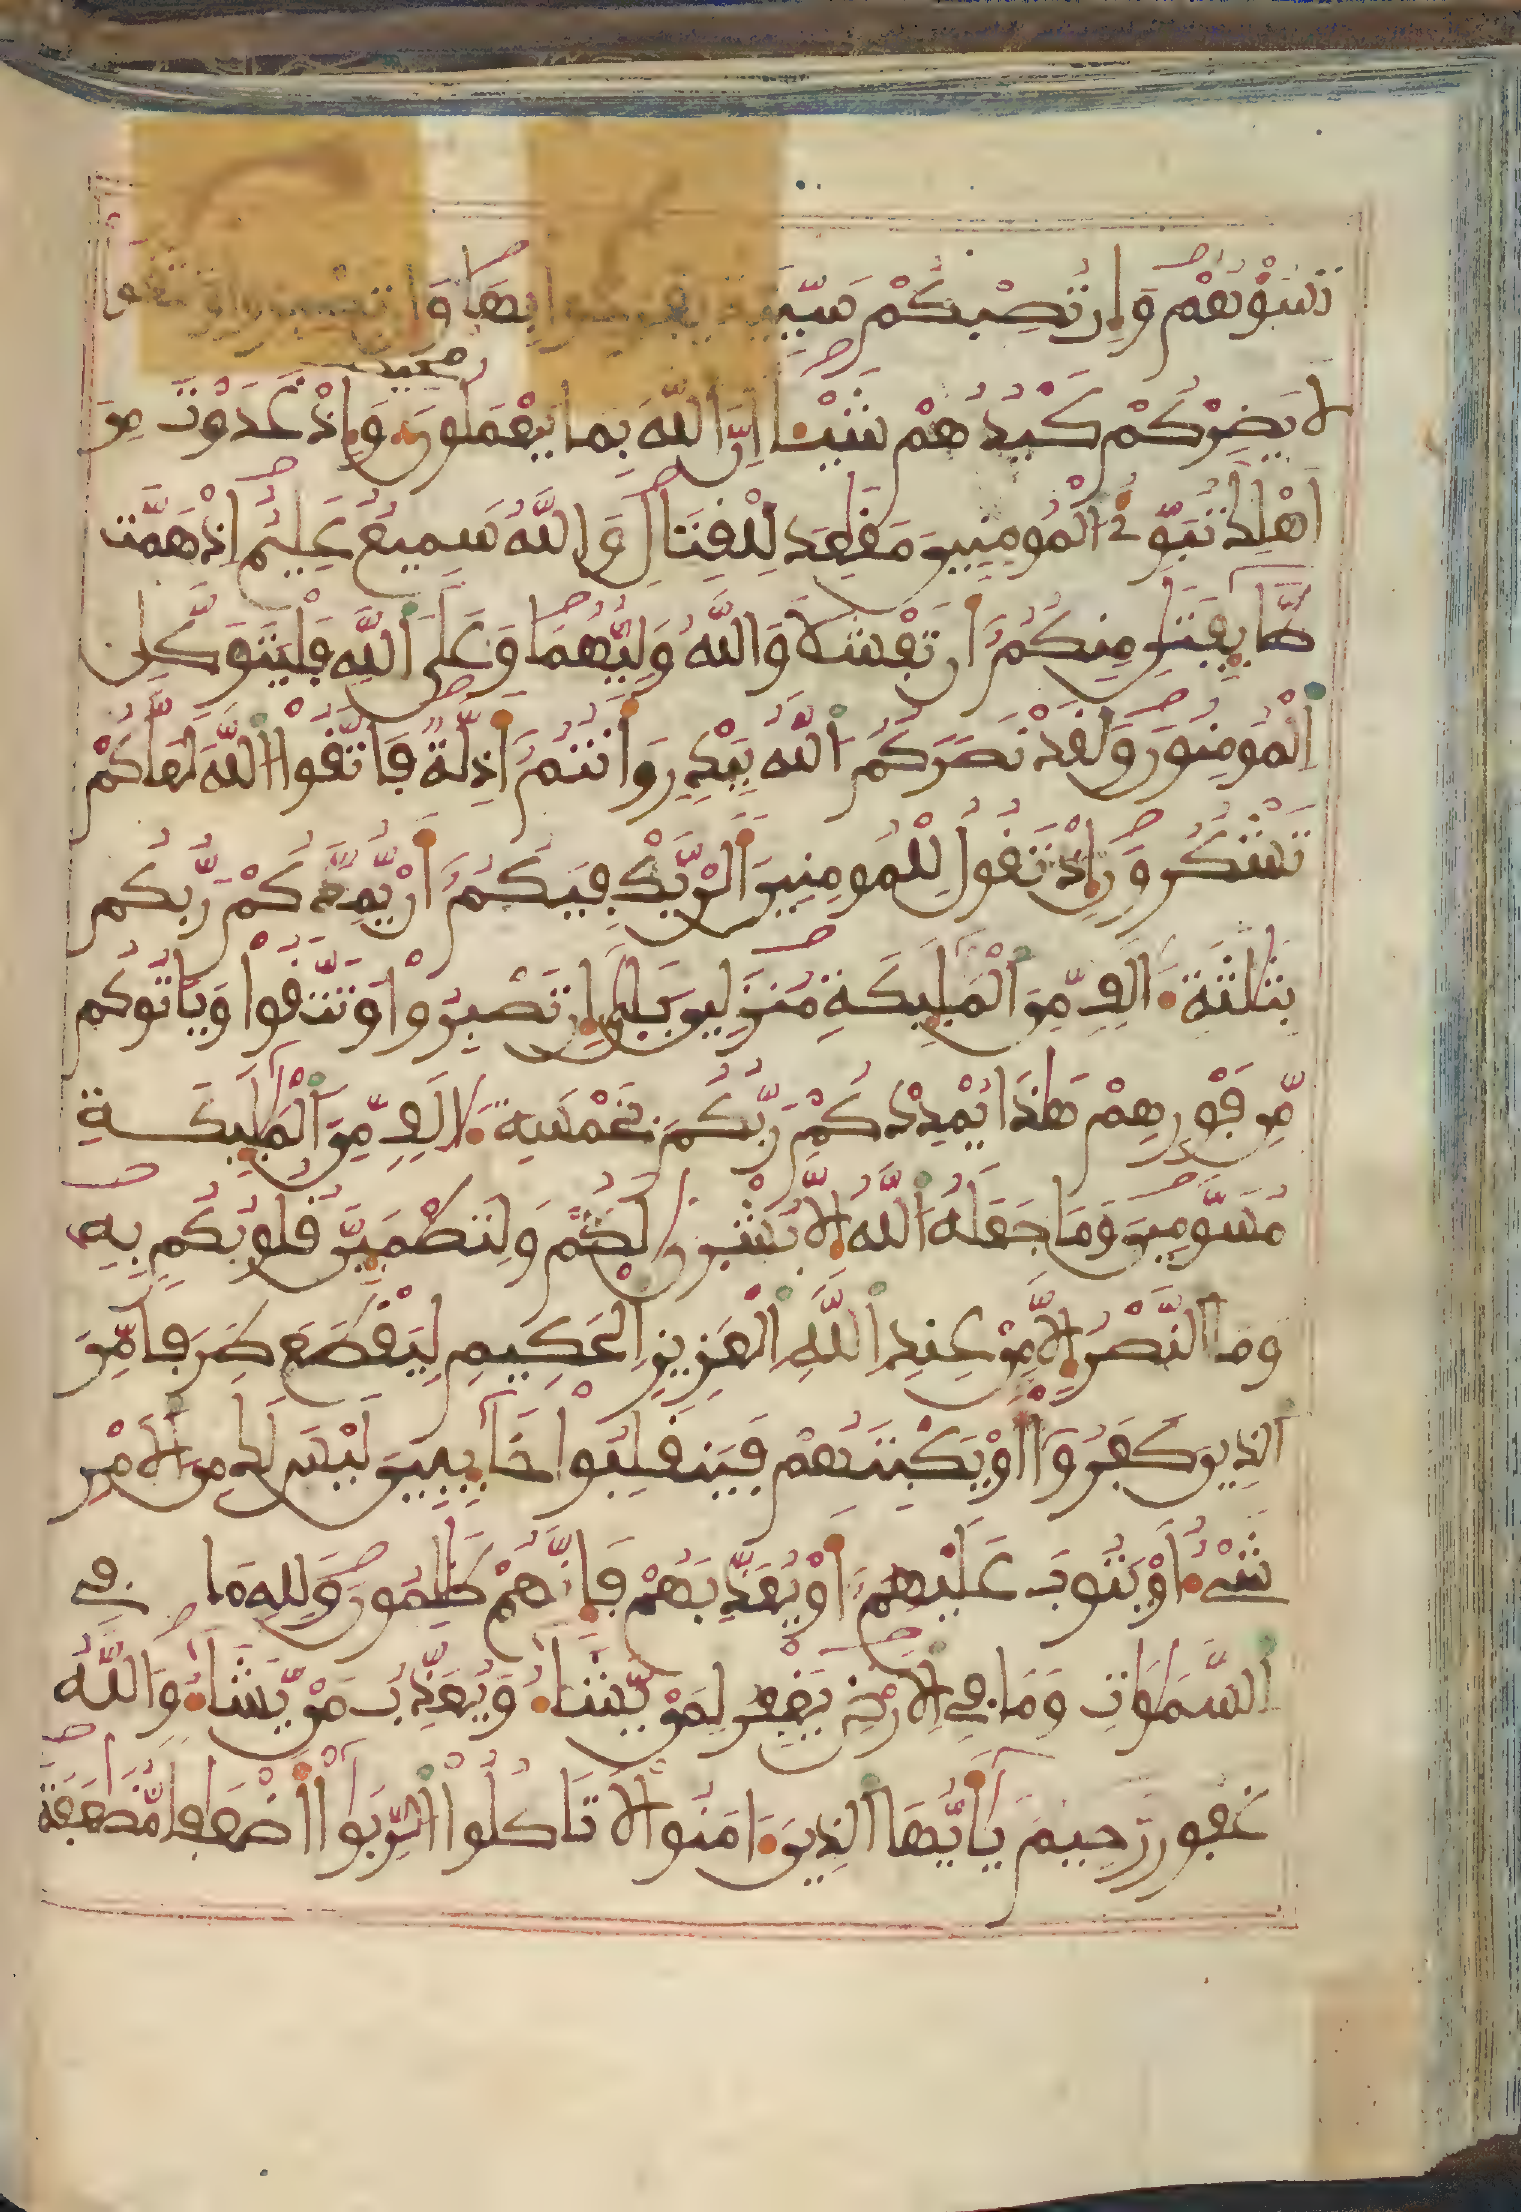 تَسُؤْهُمْ وَإِن تُصِبْكُمْ سَيِّئَةٌ يَفْرَحُوا بِهَا وَإِن تَصْبِرُوا وَتَتَّقُوا
لَا يَضِرْكُمْ كَيْدُهُمْ شَيْـًٔا اِنَّ اَللَّهَ بِمَا يَعْمَلُونَ مُحِيطٌ وَإِذْ غَدَوْتَ مِنَ
اَهْلِكَ تُبَوِّئُ اُلْمُومِنِينَ مَقَٰعِدَ لِلْقِتَالِ وَاللَّهُ سَمِيعٌ عَلِيمٌ اِذْ هَمَّت
طَّآئِفَتَٰنِ مِنكُمُۥٓ أَن تَفْشَلَا وَاللَّهُ وَلِيُّهُمَا وَعَلَى اَللَّهِ فَلْيَتَوَكَّلِ
اِلْمُومِنُونَ وَلَقَدْ نَصَرَكُمُ اُللَّهُ بِبَدْرٍ وَأَنتُمُۥٓ أَذِلَّةٌ فَاتَّقُوا اُللَّهَ لَعَلَّكُمْ
تَشْكُرُونَ إِذْ تَقُولُ لِلْمُومِنِينَ أَلَنْ يَّكْفِيَكُمُۥٓ أَنْ يُّمِدَّكُمْ رَبُّكُم
بِثَلَٰثَةِ ءَالَٰفٍ مِّنَ اَلْمَلَٰٓئِكَةِ مُنزَلِينَ بَلَىٰٓ إِن تَصْبِرُوا وَتَتَّقُوا وَيَاتُوكُم
مِّن فَوْرِهِمْ هَٰذَا يُمْدِدْكُمْ رَبُّكُم بِخَمْسَةِ ءَالَٰفٍ مِّنَ اَلْمَلَٰٓئِكَةِ
مُسَوَّمِينَ وَمَا جَعَلَهُ اُللَّهُ إِلَّا بُشْرَىٰ لَكُمْ وَلِتَطْمَئِنَّ قُلُوبُكُم بِهِۦ
وَمَا اَلنَّصْرُ إِلَّا مِنْ عِندِ اِللَّهِ اِلْعَزِيزِ اِلْحَكِيمِ لِيَقْطَعَ طَرَفًا مِّنَ
اَلذِينَ كَفَرُوٓا أَوْ يَكْبِتَهُمْ فَيَنقَلِبُوا خَآئِبِينَ لَيْسَ لَكَ مِنَ اَلَامْرِ
شَےْءٌ أَوْ يَتُوبَ عَلَيْهِمُۥٓ أَوْ يُعَذِّبَهُمْ فَإِنَّهُمْ ظَٰلِمُونَ وَلِلهِ مَا فِے
اِلسَّمَٰوَٰتِ وَمَا فِے اِلَارْضِ يَغْفِرُ لِمَنْ يَّشَآءُ وَيُعَذِّبُ مَنْ يَّشَآءُ وَاللَّهُ
غَفُورٌ رَّحِيمٌ يَٰٓأَيُّهَا اَلذِينَ ءَامَنُوا لَا تَاكُلُوا اُلرِّبَوٰٓا أَضْعَٰفًا مُّضَٰعَفَةً